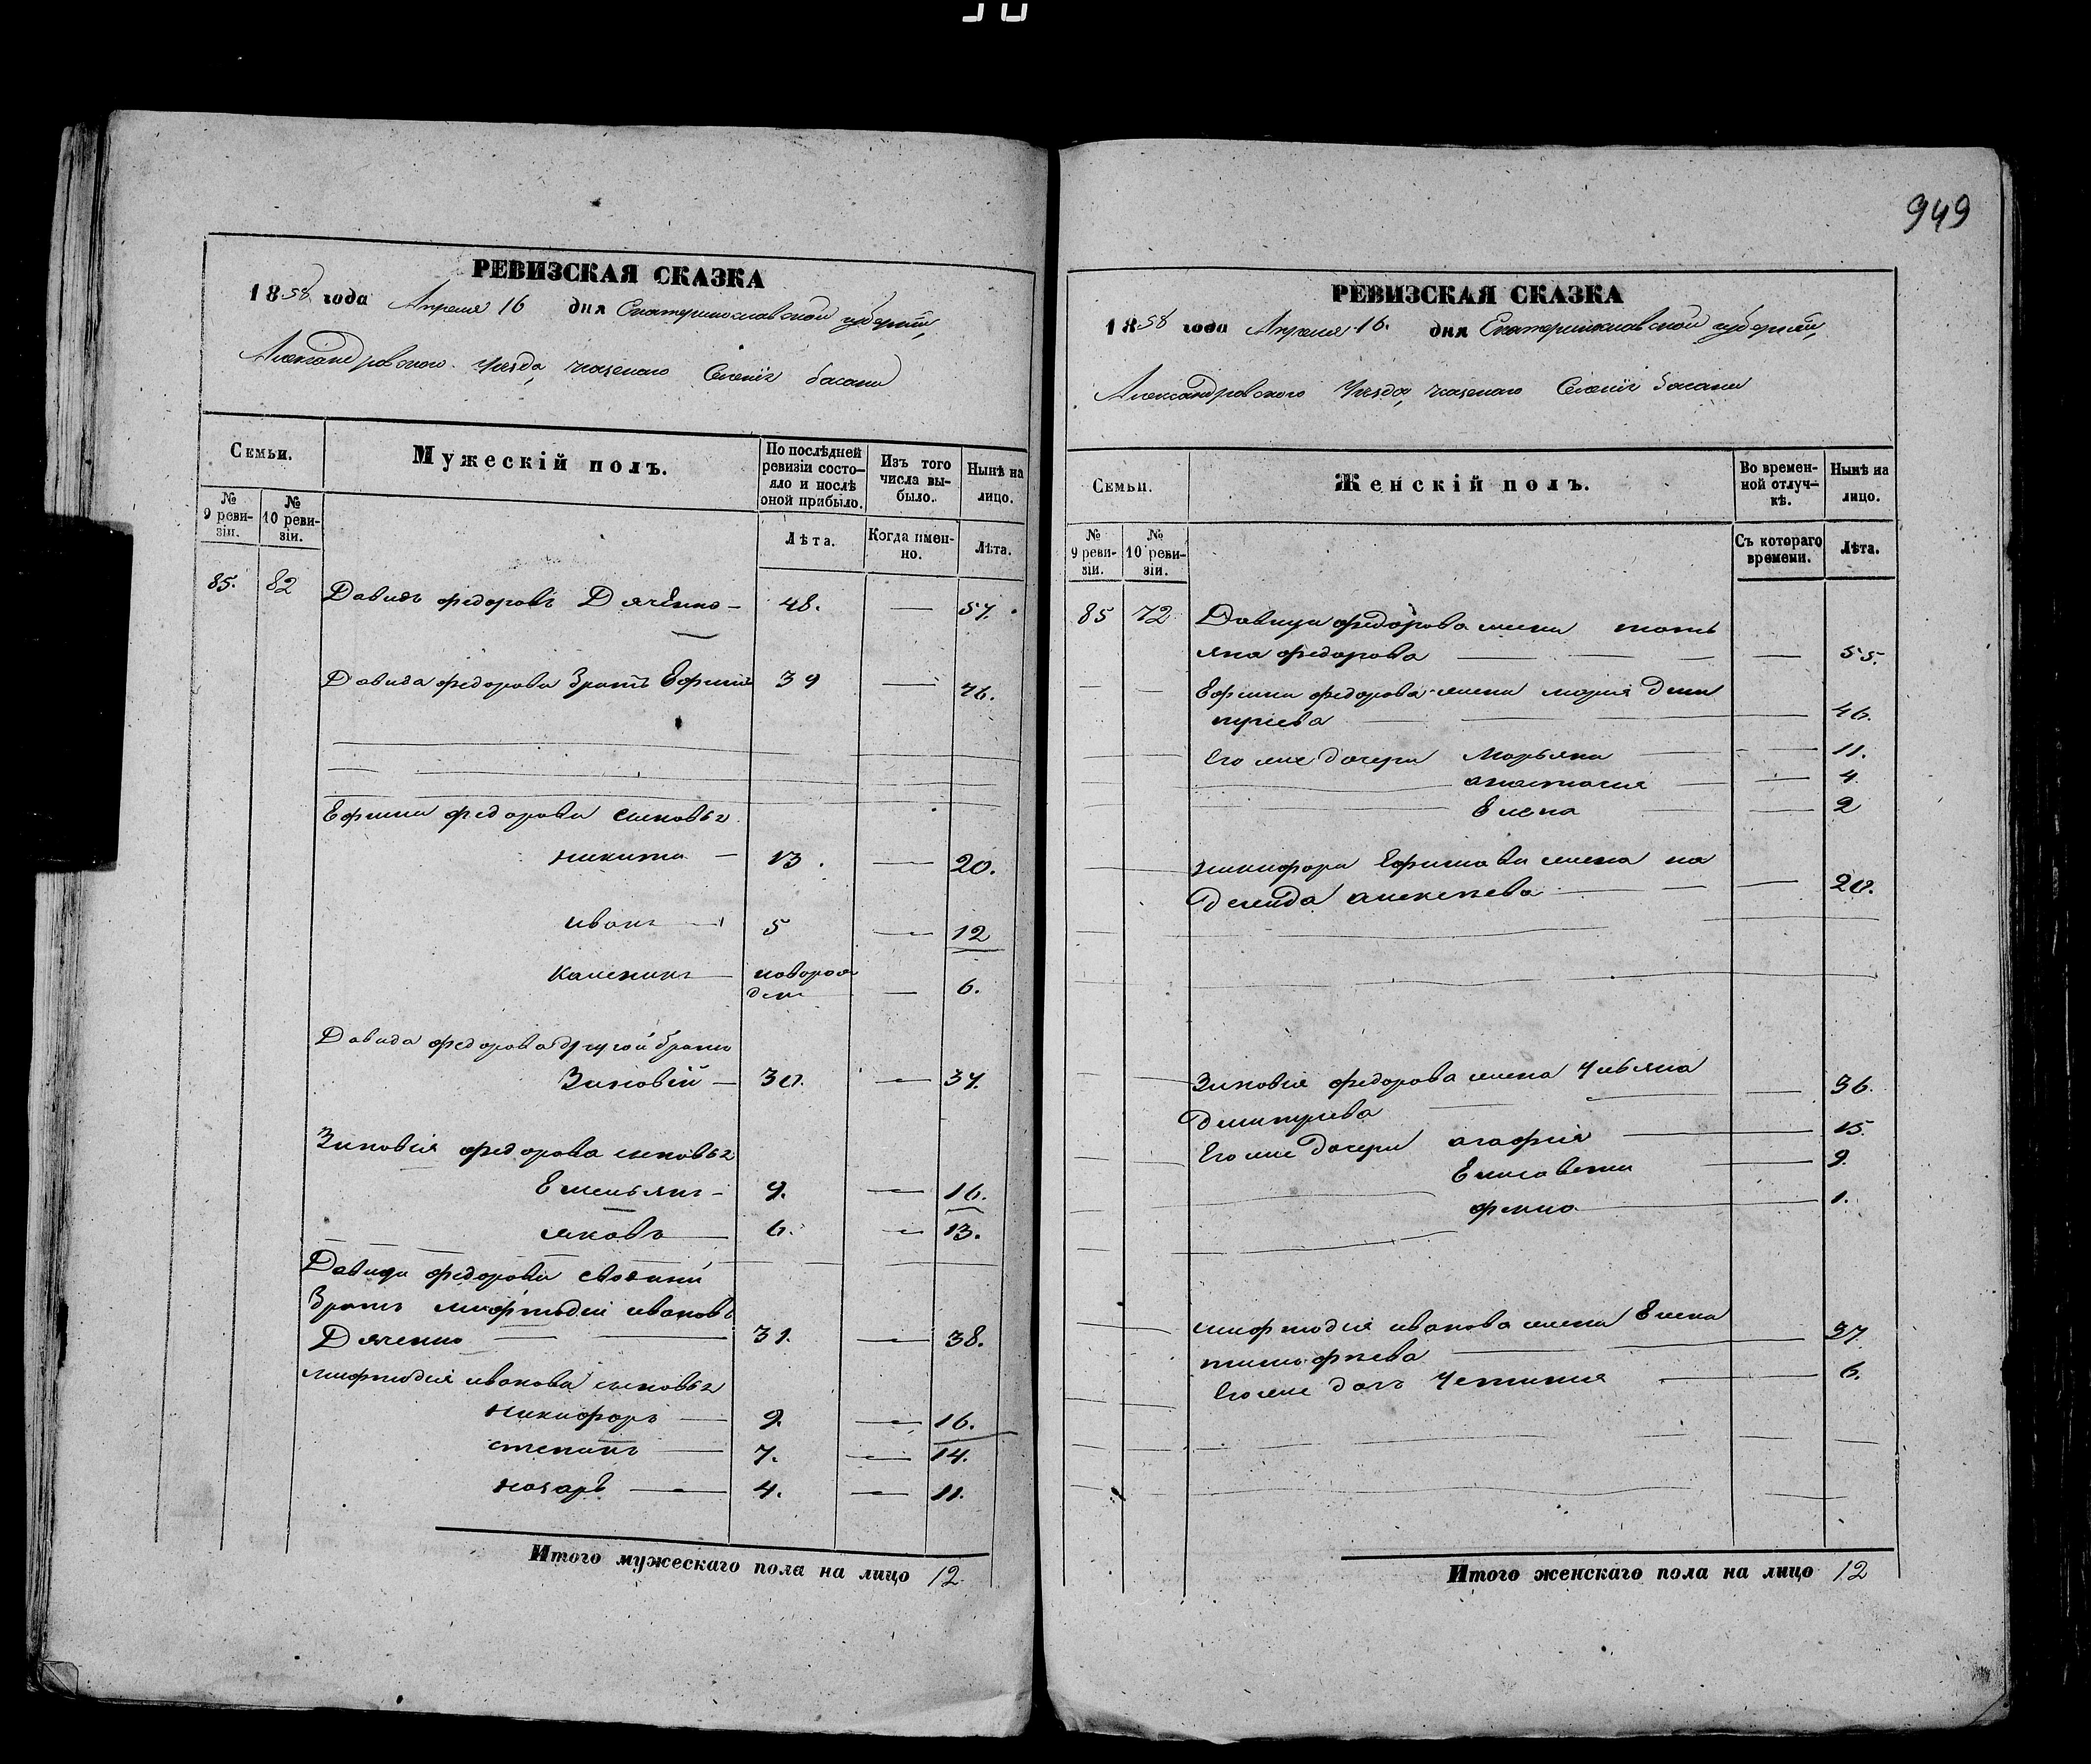 949
РЕВИЗСКАЯ СКАЗКА
1858 года Апреля 16 дня Екатеринославской губернии,
Александровского Уезда, казенаго Селенія басани
Семьи.
Мужескій полъ.
По послѣдней ревизіи состояло и послѣ оной прибыло.
Изъ того числа выбыло.
Нынѣ на лицо.
№ 9 ревизіи.
№ 10 ревизіи.
Лѣта.
Когда именно.
Лѣта.
85. 82 Давидъ федоровъ Дяченко — 48. — 57.
Давида федорова братъ Ефимъ 39 — 46.
Ефима федорова сыновья
никита — 13. — 20.
иванъ — 5 — 12
каленикъ — новорож
ден — 6.
Давида федорова другой братъ
Зиновій — 30. — 37.
Зиновія федорова сыновья
Емельянъ — 9. — 16.
яковъ — 6. — 13.
Давида федорова
братъ мефтодій ивановъ
Дяченко — 31. — 38.
мефтодія иванова сыновья
никифоръ — 9. — 16.
степанъ — 7. — 14.
назаръ — 4. — 11.
Итого мужескаго пола на лицо 12
РЕВИЗСКАЯ СКАЗКА
1858 года Апреля 16. дня Екатеринославской губернии,
Александровского Уезда, казенаго Селенія басани
Семьи.
Женскій полъ.
Во временной отлучкѣ.
Нынѣ на лицо.
№ 9 ревизіи.
№ 10 ревизіи.
Съ котораго времени.
Лѣта.
85 72 Давида федорова жена тать
яна федорова — 55.
Ефима федорова жена марія дми
тріева — 46.
Его же дочери Марьяна — 11.
анастасія — 4
Елена — 2
никифора Ефимова жена на
дежда алексеева — 20.
Зиновія федорова жена Ульяна — 36.
Дмитріева
Его же дочери агафія — 15.
Елисавета — 9.
фекла — 1.
мефтодія иванова жена Елена
тимофеева — 37
Его же дочь — 6.
Итого женскаго пола на лицо 12